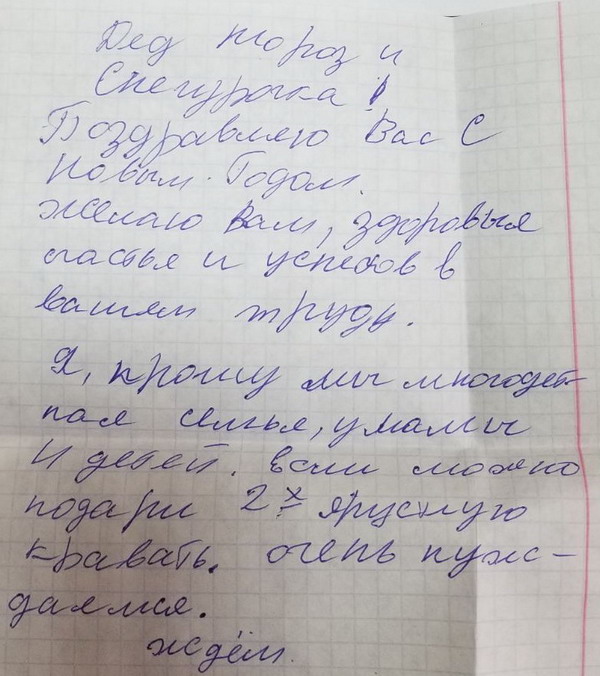 Дед мороз и
Снегурочка!
Поздравляю Вас С
Новым Годом.
желаю Вам, здоровья
счастья и успехов в
вашем труду.
Я, прошу мы многодет-
ная семья, у мамы
4 детей. если можно
подари 2х ярусную
кравать. очень нуж-
даемся.
ждём.